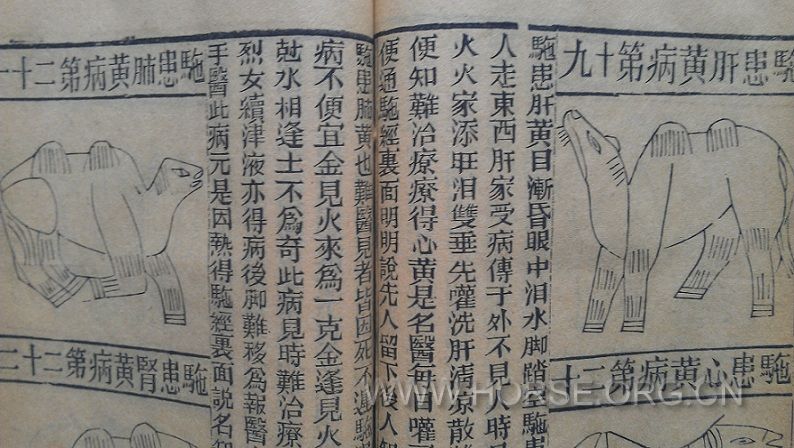 駞患肝黃病第十九
駞患肝黃目漸昏眼中泪水脚踏
人走東西肝家受病傳于外不見人時
火火家添旺泪雙垂先灌洗肝清凉散
便知難治療療得心黃是名醫每日嚾
便通駞經裏面明明說先人留下
駞患心黃病第二十
駞患肺黃病第二十一
駞患肺黃也難醫見者皆因死不
病不便宜金見火來爲一克金逢見火
尅水相逢土不爲奇此病見時難治療
烈女續津液亦得病後脚難移爲報醫
手醫此病元是因熱得駞經裏面說名
駞患腎黃病第二十二
WWW.HORSE.ORG.CN